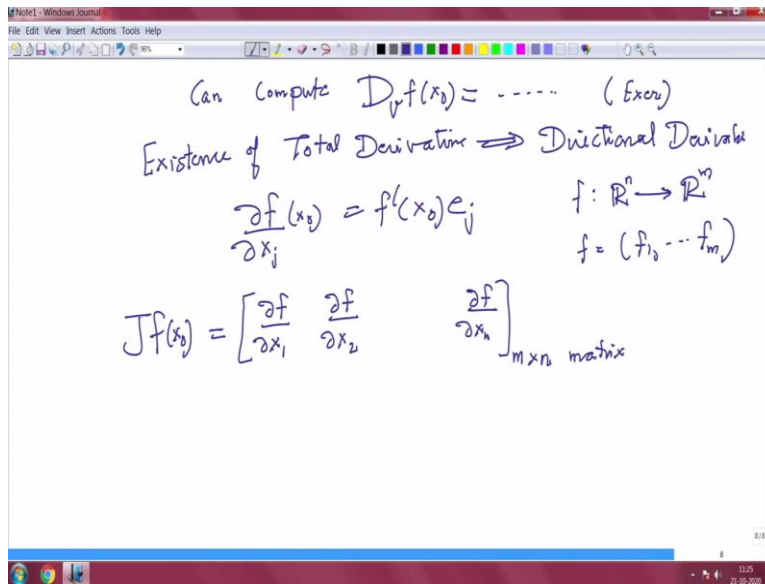 Note1 - Windows Journal
File Edit View Insert Actions Tools Help
Can Compute D_v f(x_0) = ----- (Exer)
Existence of Total Derivative ⟹ Directional Derivative
∂f/∂x_j (x_0) = f'(x_0) e_j
f : ℝ^n ⟶ ℝ^m
f = (f_1, --- f_m)
Jf(x_0) = [∂f/∂x_1 ∂f/∂x_2 ∂f/∂x_n] m×n matrix
8/8
8
11:25
21-10-2020